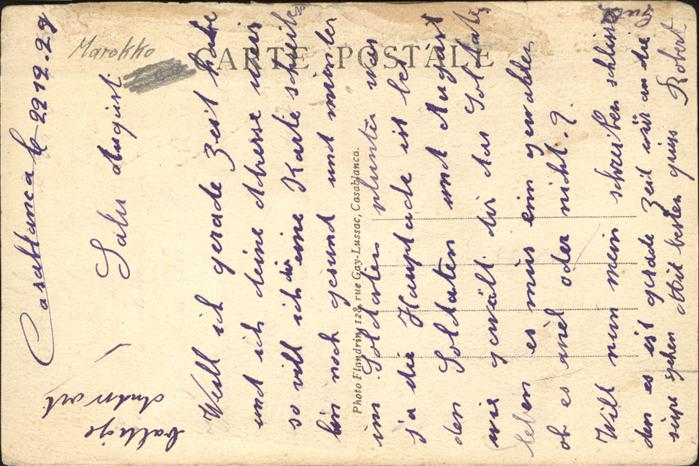 Marokko
CARTE POSTALE
Casablanca le 22 12. 29
Salu August.
Weill ich gerade Zeit habe
und ich deine Adresse weis
so will ich dir eine Karte schreiben
bin noch gesund und munter
im Soldaten plunder was
ja die Hauptsache ist bei
den Soldaten und August
wie gefällt dir das Soldaten
leben es mus eim gefallen
ob es will oder nicht. ?.
Will nun mein schreiben schlisen
den es ist gerade Zeit
gehen Mit besten grüss Robert
baldige
Antwort.
Photo Flandrin, 128, rue Gay-Lussac, Casablanca.